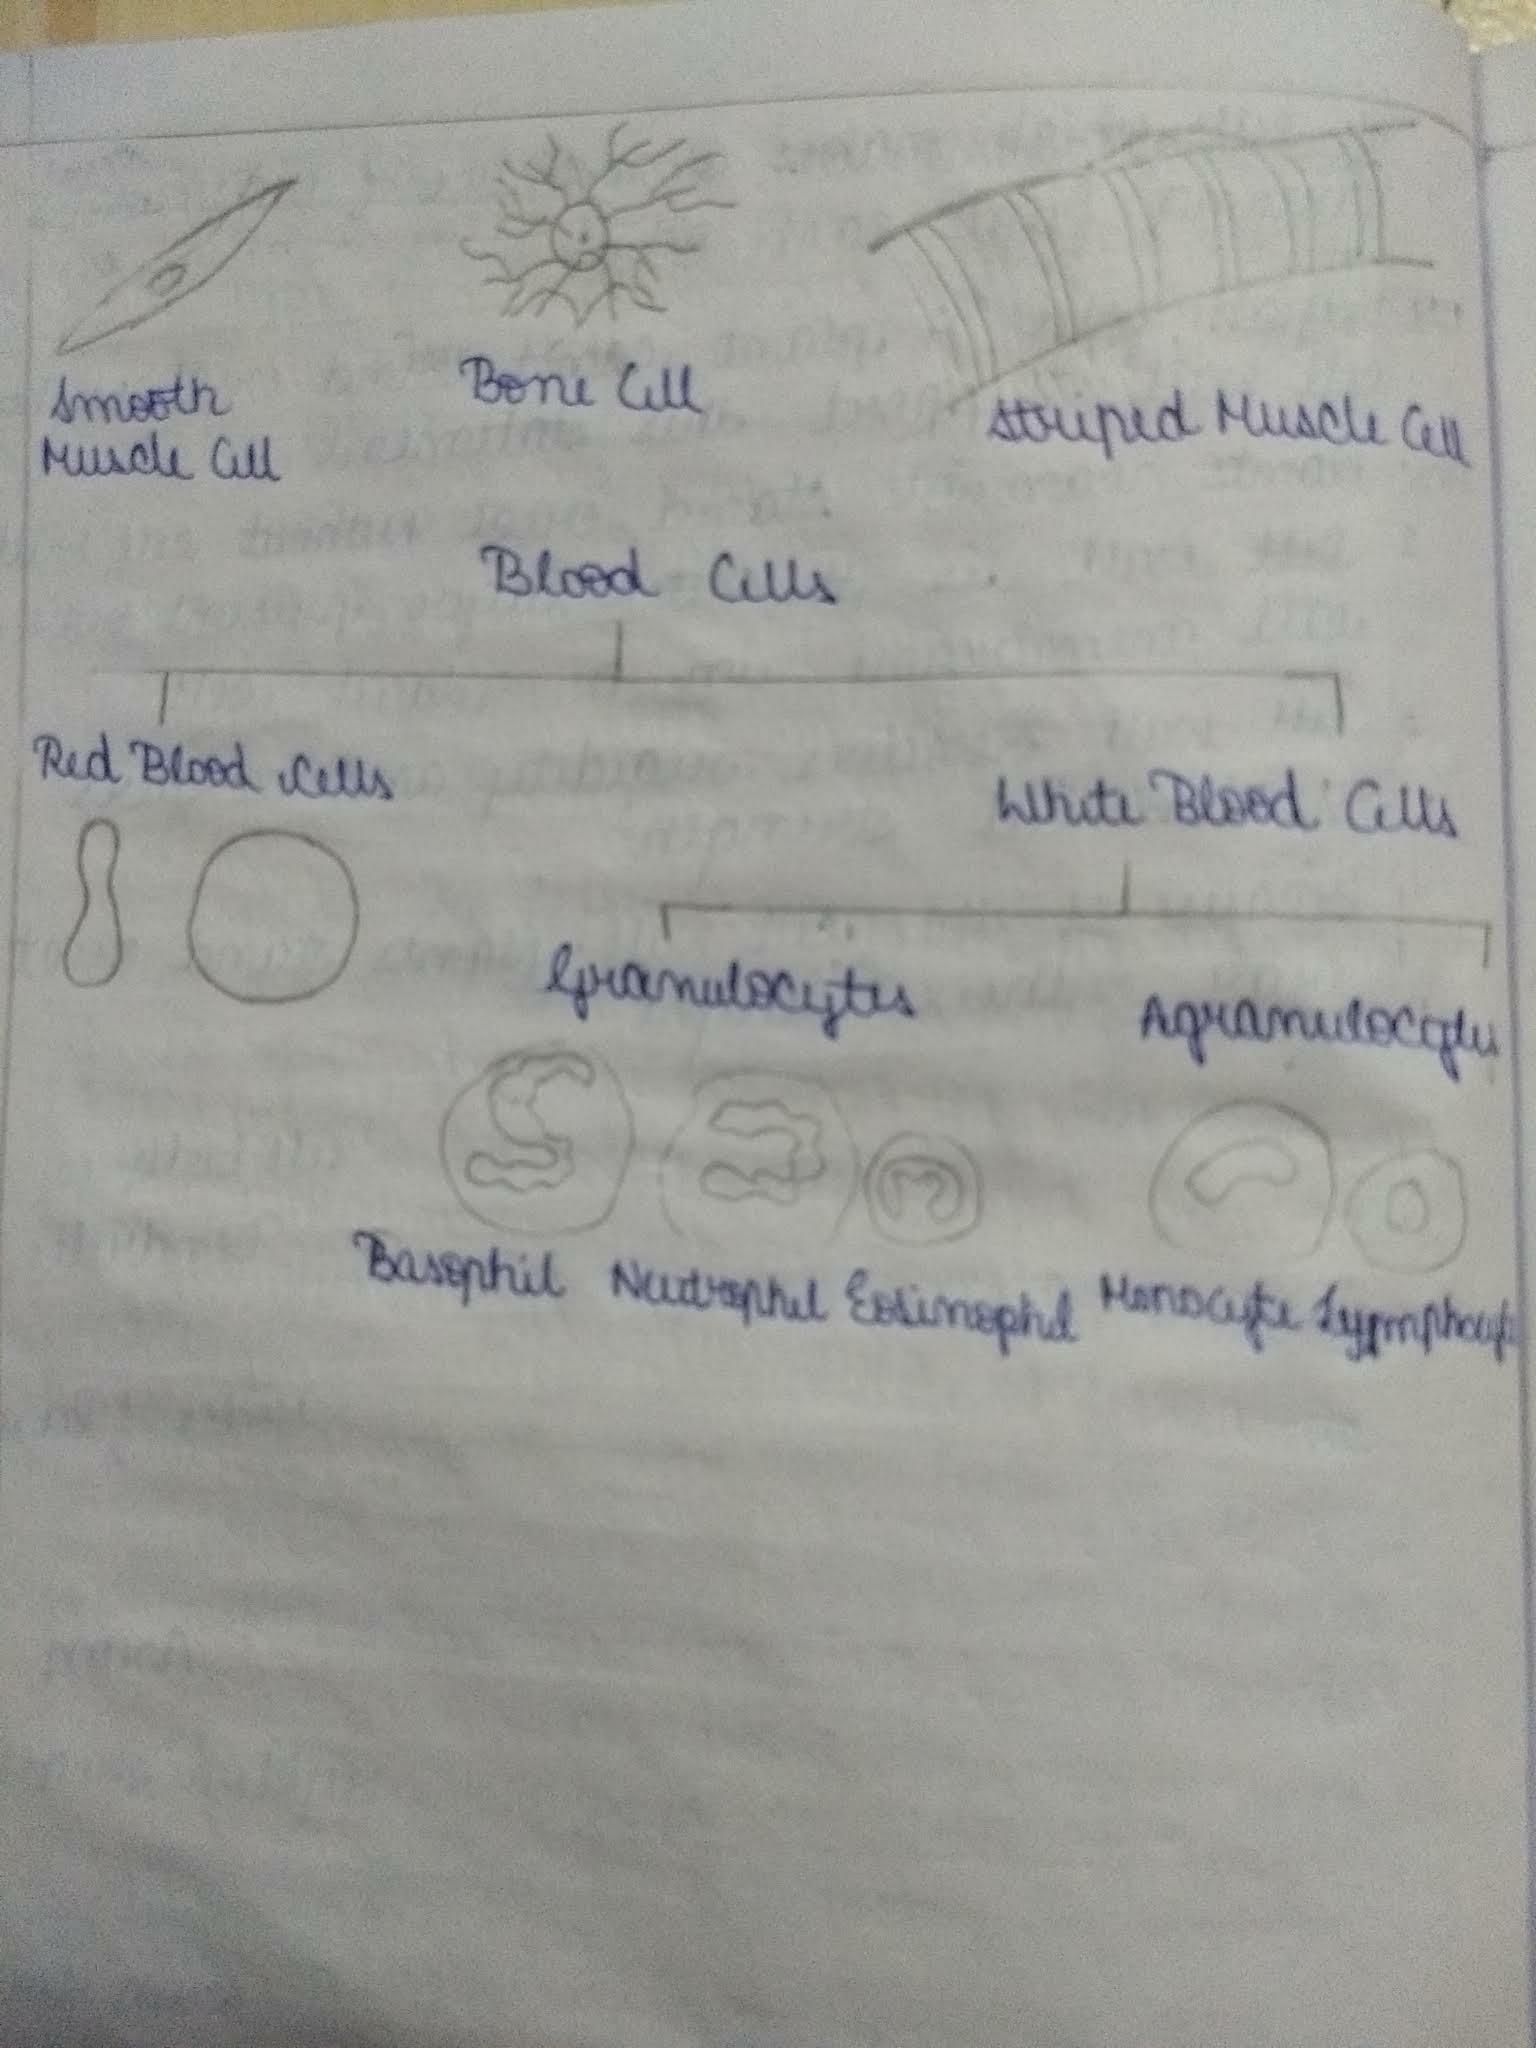 Smooth
Muscle Cell
Bone Cell
Striped Muscle Cell
Blood Cells
Red Blood Cells
White Blood Cells
Granulocytes
Agranulocytes
Basophil Neutrophil Eosinophil Monocyte Lypmphocyte